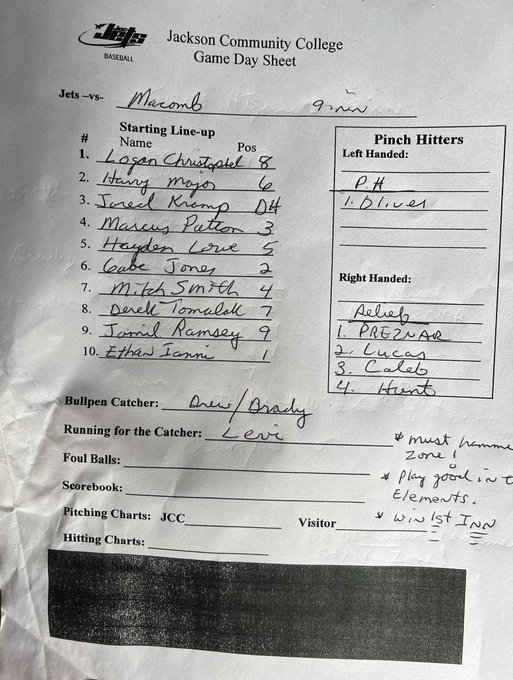 Jets
BASEBALL
Jackson Community College
Game Day Sheet
Jets –vs- Macomb 9 inn
Starting Line-up
# Name Pos
1. Logan Christophel 8
2. Harry Major 6
3. Jared Kramp DH
4. Marcus Patton 3
5. Hayden Love 5
6. Gabe Jones 2
7. Mitch Smith 4
8. Derek Tomalak 7
9. Jamil Ramsey 9
10. Ethan Ianni 1
Pinch Hitters
Left Handed:
P.H
1. Oliver
Right Handed:
Relief
1. PREZNAR
2. Lucas
3. Caleb
4. Hunt
Bullpen Catcher: Drew/Brady
Running for the Catcher: Levi
Foul Balls:
Scorebook:
Pitching Charts: JCC Visitor
Hitting Charts:
* Must hamme
Zone!
* Play good in t
Elements.
* Win 1st INN